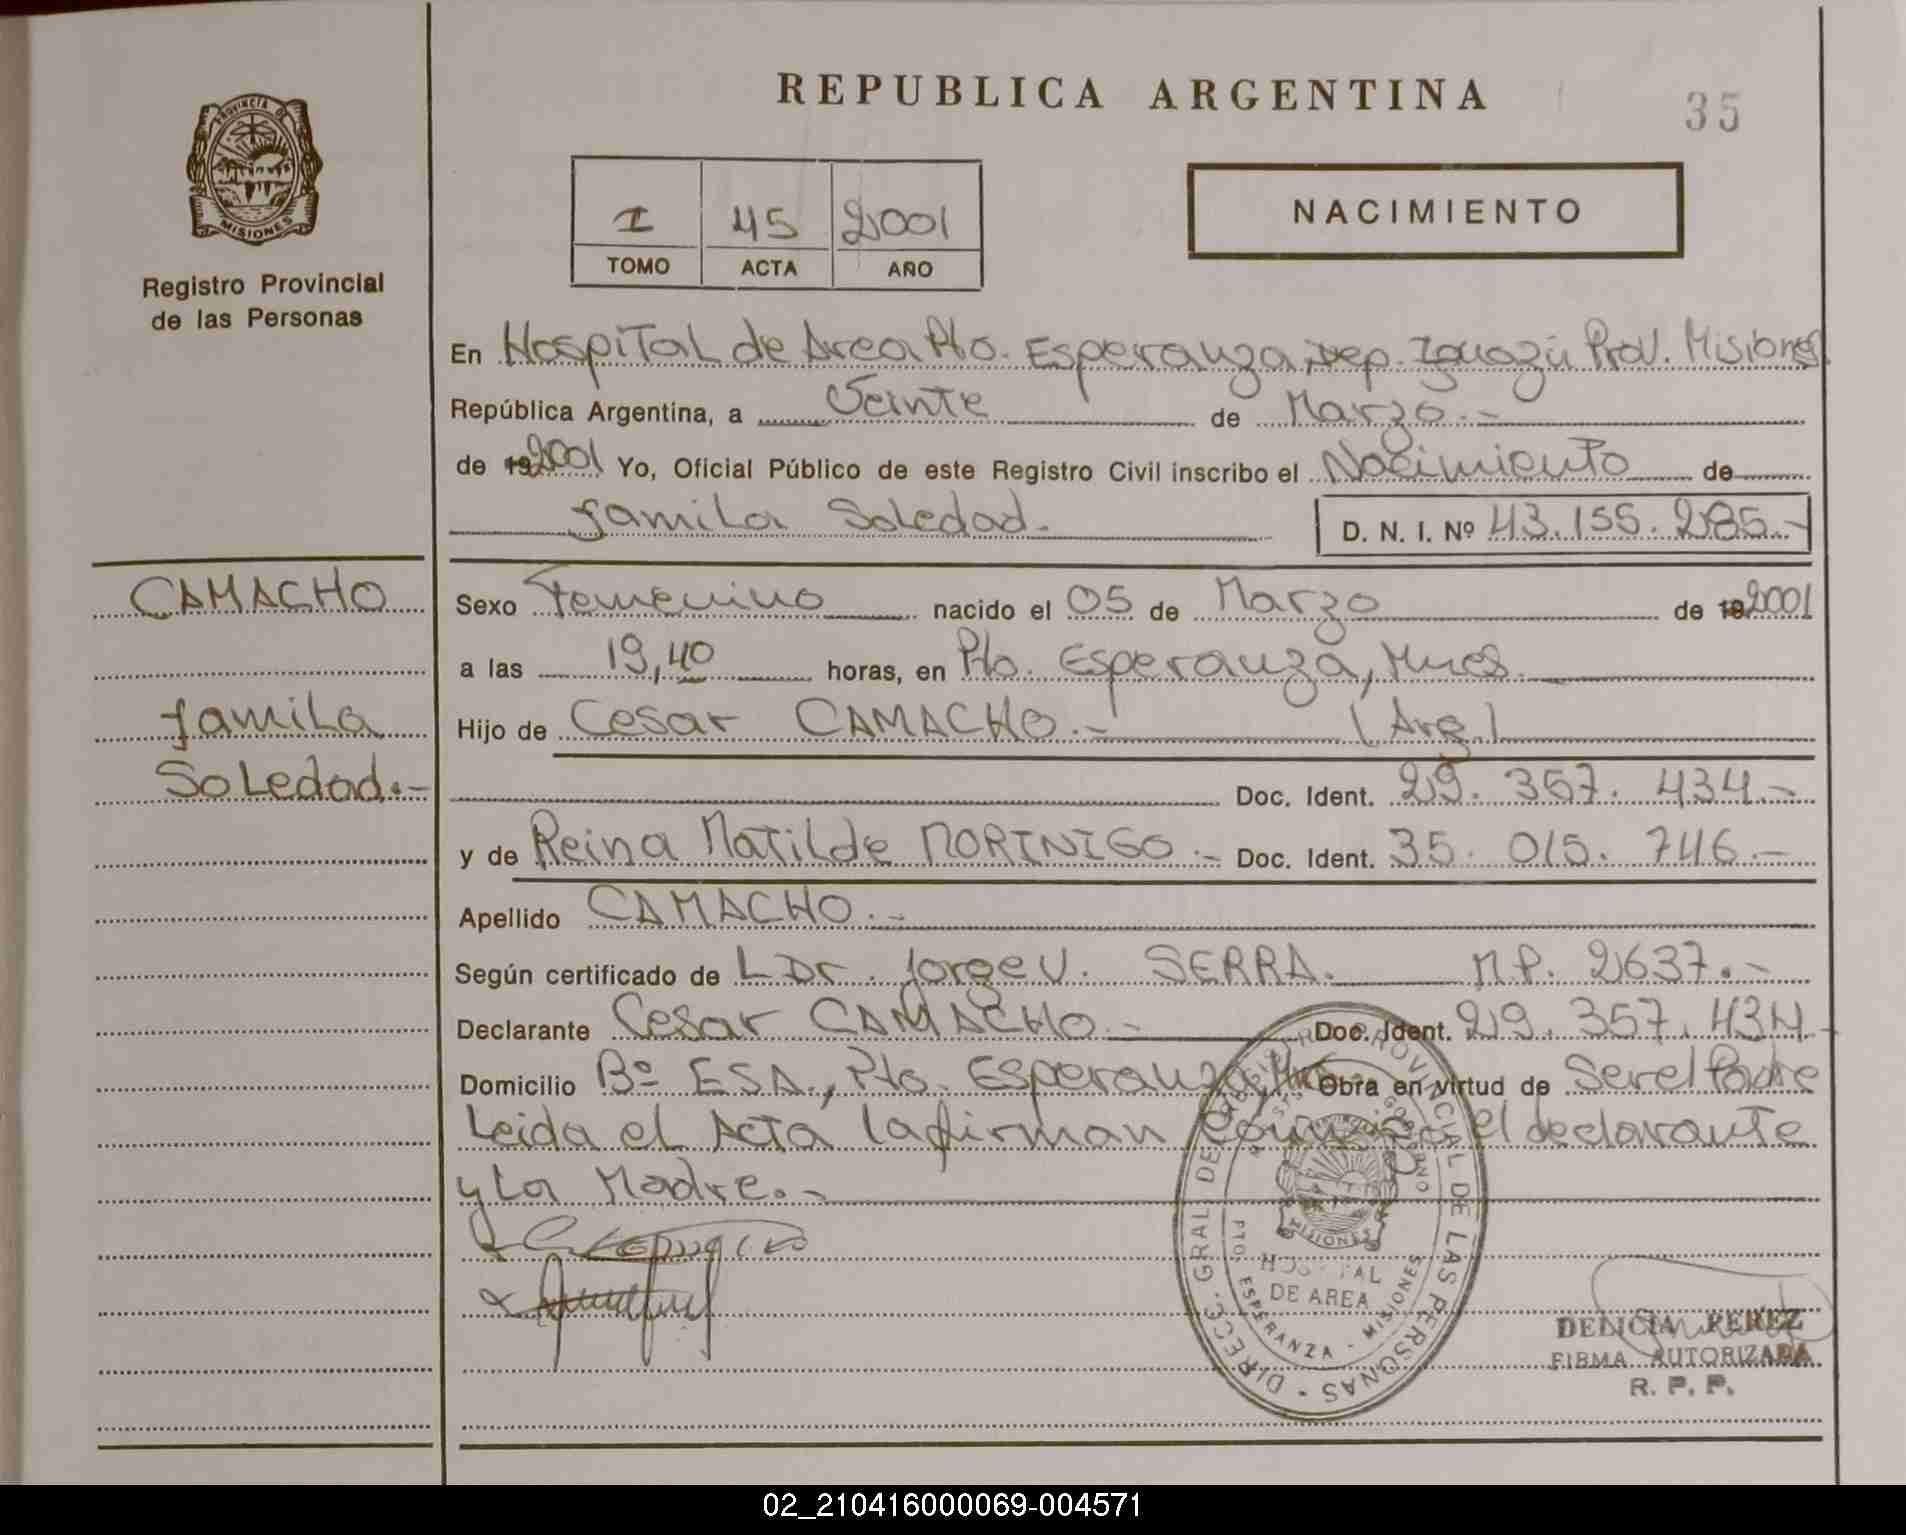 REPUBLICA ARGENTINA
35
PROVINCIA DE
MISIONES
Registro Provincial
de las Personas
I 45 2001
TOMO ACTA AÑO
NACIMIENTO
En Hospital de Area Pto. Esperanza, Dep. Iguazú Prov. Misiones.
República Argentina, a Veinte de Marzo.-
de 19 2001 Yo, Oficial Público de este Registro Civil inscribo el Nacimiento de
Jamila Soledad.
D. N. I. Nº 43.155.285.-
CAMACHO
Jamila
Soledad.-
Sexo Femenino nacido el 05 de Marzo de 19 2001
a las 19,40 horas, en Pto. Esperanza, Mnes.
Hijo de Cesar CAMACHO.- (Arg)
Doc. Ident. 29.357.434.-
y de Reina Matilde MORINIGO.- Doc. Ident. 35.015.746.-
Apellido CAMACHO.-
Según certificado de L Dr. Jorge V. SERRA. M.P. 2637.-
Declarante Cesar CAMACHO.- Doc. Ident. 29.357.434.-
Domicilio Bº ESA., Pto. Esperanza, Obra en virtud de Ser el Padre
Leida el Acta la firman el declarante
y La Madre.-
DIRECC. GRAL DE REGISTRO PROVINCIAL DE LAS PERSONAS
GOBIERNO
MISIONES
HOSPITAL
DE AREA
PTO. ESPERANZA - MISIONES
DELICIA PEREZ
FIRMA AUTORIZADA
R. P. P.
02_210416000069-004571